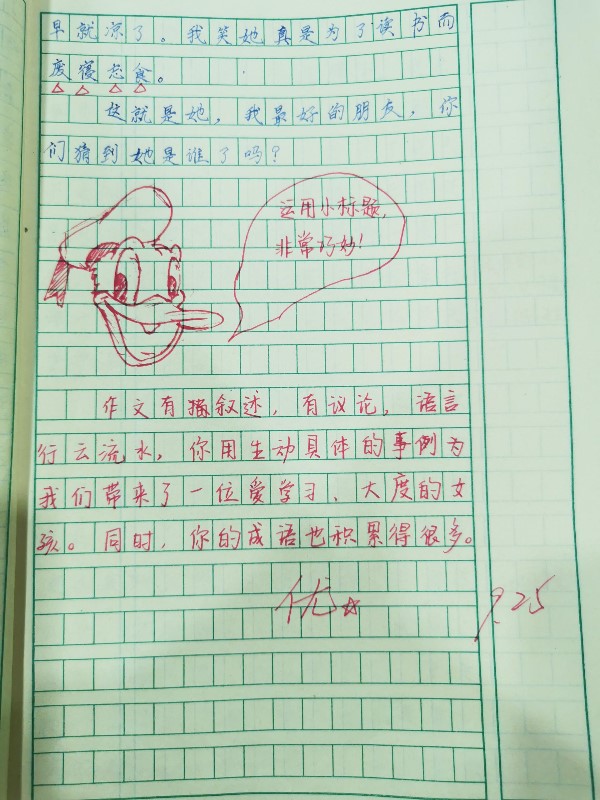 早就凉了。我笑她真是为了读书而
废寝忘食。
这就是她，我最好的朋友，你
们猜到她是谁了吗？
运用小标题，
非常巧妙！
作文有叙述，有议论，语言
行云流水，你用生动具体的事例为
我们带来了一位爱学习、大度的女
孩。同时，你的成语也积累得很多。
优☆
9.25